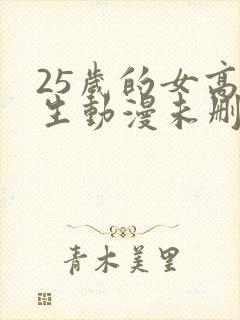 25歲的女高
生動漫未刪
青木美里